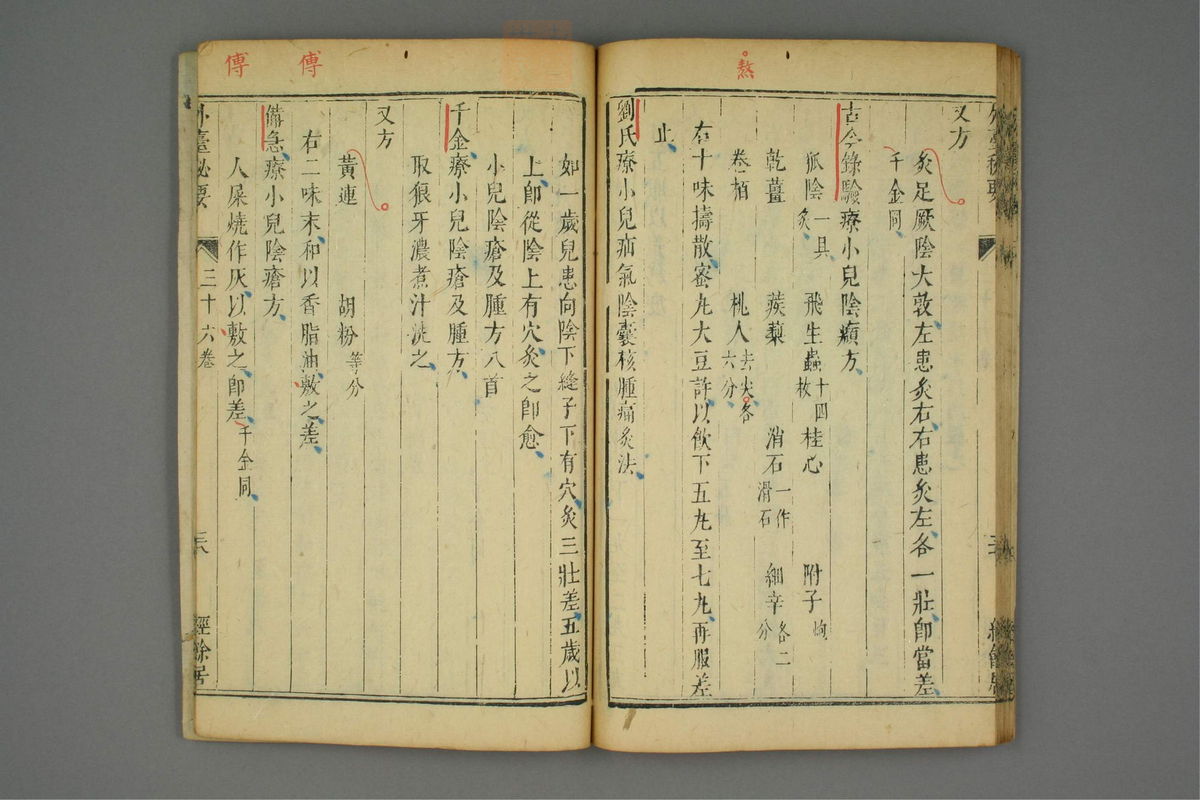 熬
又方
灸足厥陰大敦左患灸右右患灸左各一壯即當差
千金同
古今錄驗療小兒陰㿗方
狐陰一具灸 飛生蟲十四枚 桂心 附子炮
乾薑 蒺藜 消石一作滑石 細辛各二分
卷栢 桃人去尖各六分
右十味擣散蜜丸大豆許以飲下五丸至七丸再服差
止
劉氏療小兒疝氣陰囊核腫痛灸法
如一歲兒患向陰下縫子下有穴灸三壯差五歲以
上即從陰上有穴灸之即愈
小兒陰瘡及腫方八首
千金療小兒陰瘡及腫方
取狼牙濃煮汁洗之
又方
黃連 胡粉等分
右二味末和以香脂油敷之差
備急療小兒陰瘡方
人屎燒作灰以敷之即差千金同
傅
傅
外臺秘要 三十六卷 經餘居